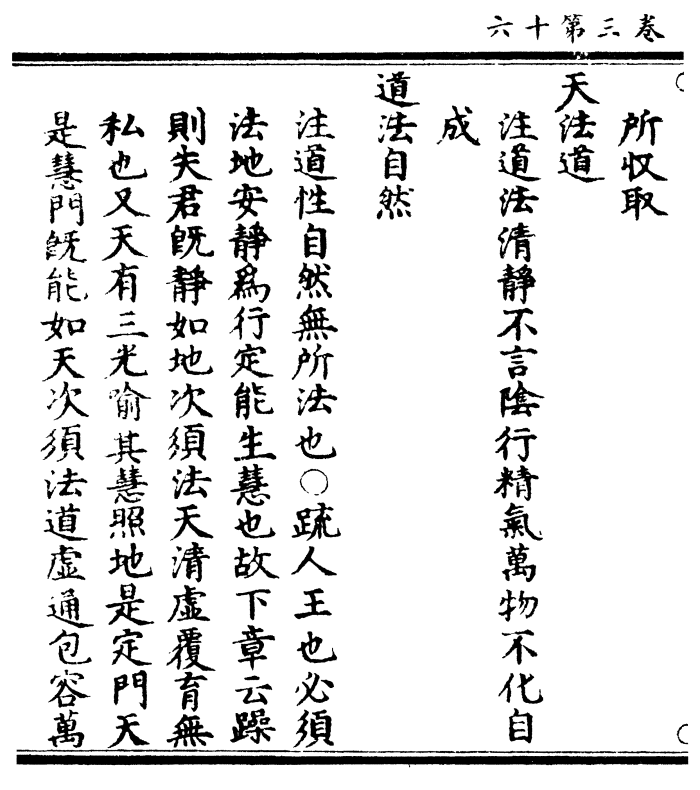 卷三第十六
所収取
天法道
注道法清靜不言陰行精氣萬物不化自
成
道法自然
注道性自然無所法也○䟽人王也必須
法地安靜為行定能生慧也故下章云躁
則失君旣靜如地次須法天清虛覆育無
私也又天有三光喻其慧照地是定門天
是慧門旣能如天次須法道虛通包容萬